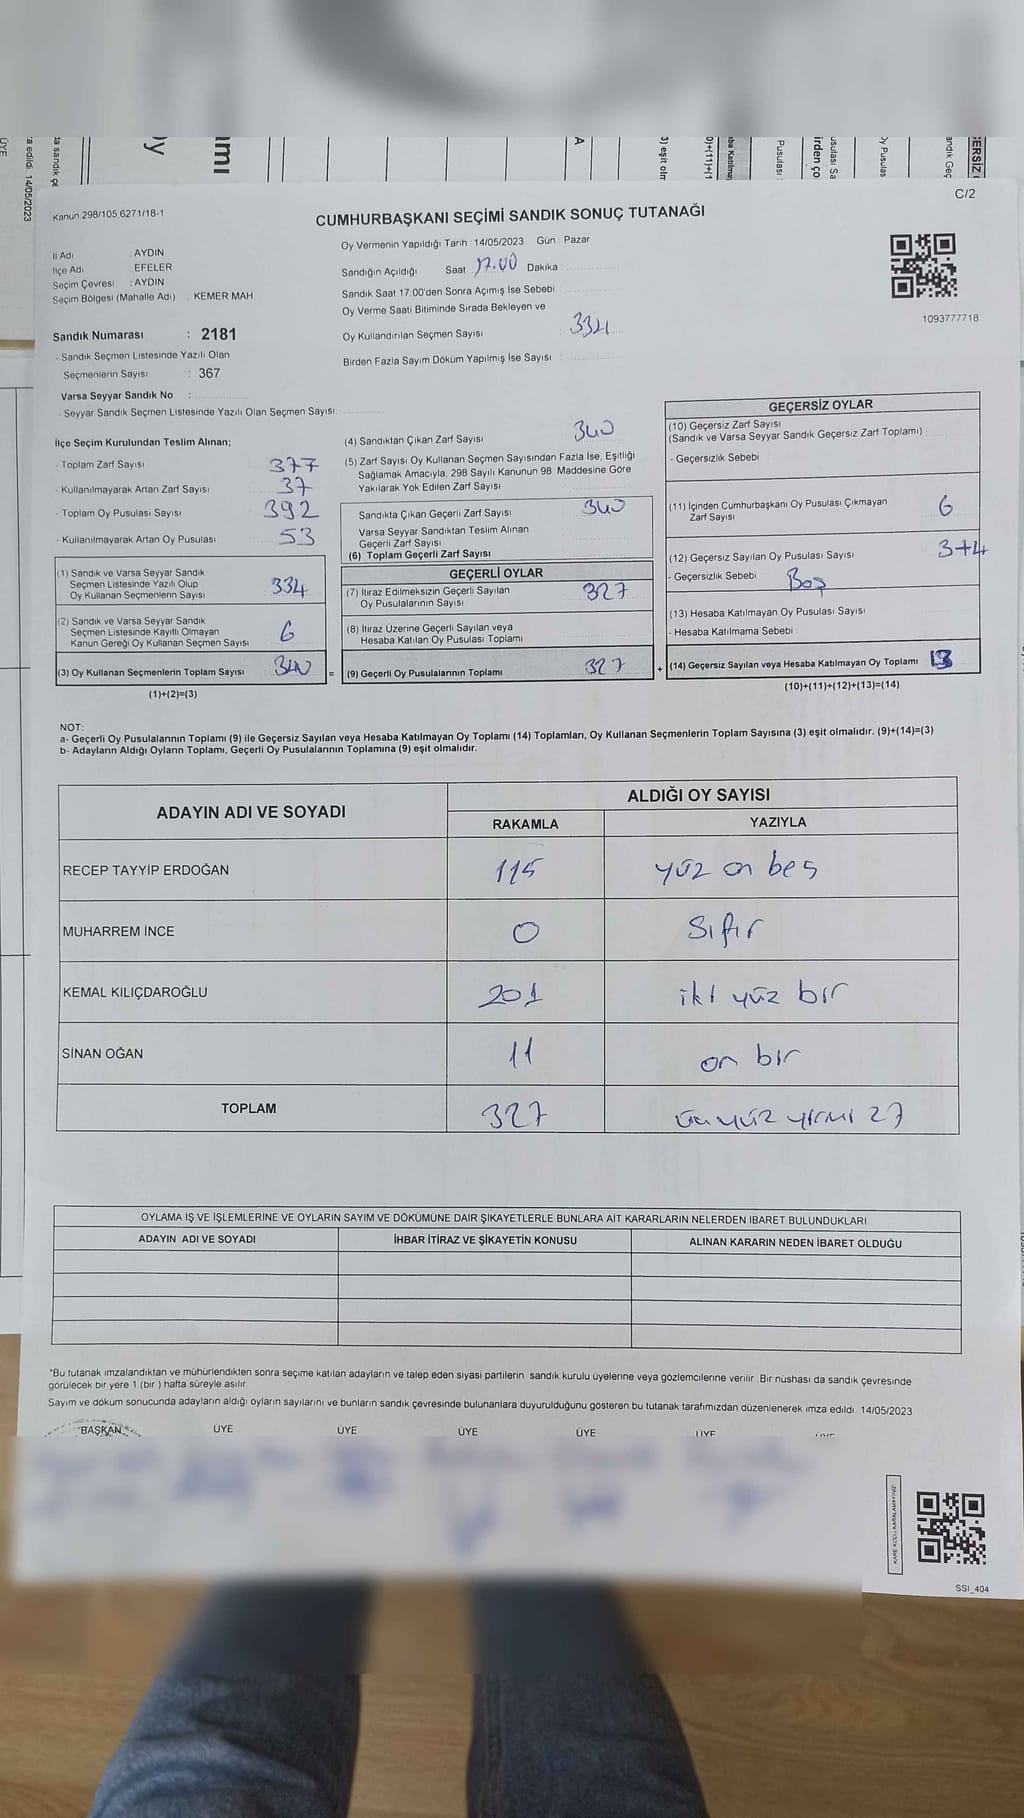 C/2
Kanun 298/105 6271/18-1
CUMHURBAŞKANI SEÇİMİ SANDIK SONUÇ TUTANAĞI
İl Adı : AYDIN
İlçe Adı : EFELER
Seçim Çevresi : AYDIN
Seçim Bölgesi (Mahalle Adı) : KEMER MAH.
Sandık Numarası : 2181
- Sandık Seçmen Listesinde Yazılı Olan
Seçmenlerin Sayısı : 367
Varsa Seyyar Sandık No :
- Seyyar Sandık Seçmen Listesinde Yazılı Olan Seçmen Sayısı:
Oy Vermenin Yapıldığı Tarih : 14/05/2023 Gün : Pazar
Sandığın Açıldığı Saat 17.00 Dakika
Sandık Saat 17:00'den Sonra Açımış İse Sebebi
Oy Verme Saati Bitiminde Sırada Bekleyen ve
Oy Kullandırılan Seçmen Sayısı : 334
Birden Fazla Sayım Döküm Yapılmış İse Sayısı :
1093777718
İlçe Seçim Kurulundan Teslim Alınan;
- Toplam Zarf Sayısı 377
- Kullanılmayarak Artan Zarf Sayısı 37
- Toplam Oy Pusulası Sayısı 392
- Kullanılmayarak Artan Oy Pusulası 53
(1) Sandık ve Varsa Seyyar Sandık
Seçmen Listesinde Yazılı Olup
Oy Kullanan Seçmenlerin Sayısı 334
(2) Sandık ve Varsa Seyyar Sandık
Seçmen Listesinde Kayıtlı Olmayan
Kanun Gereği Oy Kullanan Seçmen Sayısı 6
(3) Oy Kullanan Seçmenlerin Toplam Sayısı 340
(1)+(2)=(3)
(4) Sandıktan Çıkan Zarf Sayısı 340
(5) Zarf Sayısı Oy Kullanan Seçmen Sayısından Fazla İse, Eşitliği
Sağlamak Amacıyla, 298 Sayılı Kanunun 98. Maddesine Göre
Yakılarak Yok Edilen Zarf Sayısı
Sandıkta Çıkan Geçerli Zarf Sayısı 340
Varsa Seyyar Sandıktan Teslim Alınan
Geçerli Zarf Sayısı
(6) Toplam Geçerli Zarf Sayısı
GEÇERLİ OYLAR
(7) İtiraz Edilmeksizin Geçerli Sayılan
Oy Pusulalarının Sayısı 327
(8) İtiraz Üzerine Geçerli Sayılan veya
Hesaba Katılan Oy Pusulası Toplamı
= (9) Geçerli Oy Pusulalarının Toplamı 327 +
GEÇERSİZ OYLAR
(10) Geçersiz Zarf Sayısı
(Sandık ve Varsa Seyyar Sandık Geçersiz Zarf Toplamı) :
- Geçersizlik Sebebi
(11) İçinden Cumhurbaşkanı Oy Pusulası Çıkmayan
Zarf Sayısı 6
(12) Geçersiz Sayılan Oy Pusulası Sayısı 3+4
- Geçersizlik Sebebi Boş
(13) Hesaba Katılmayan Oy Pusulası Sayısı
- Hesaba Katılmama Sebebi
(14) Geçersiz Sayılan veya Hesaba Katılmayan Oy Toplamı 13
(10)+(11)+(12)+(13)=(14)
NOT:
a- Geçerli Oy Pusulalarının Toplamı (9) ile Geçersiz Sayılan veya Hesaba Katılmayan Oy Toplamı (14) Toplamları, Oy Kullanan Seçmenlerin Toplam Sayısına (3) eşit olmalıdır. (9)+(14)=(3)
b- Adayların Aldığı Oyların Toplamı, Geçerli Oy Pusulalarının Toplamına (9) eşit olmalıdır.
ADAYIN ADI VE SOYADI ALDIĞI OY SAYISI
RAKAMLA YAZIYLA
RECEP TAYYİP ERDOĞAN 115 yüz on beş
MUHARREM İNCE 0 Sıfır
KEMAL KILIÇDAROĞLU 201 iki yüz bir
SİNAN OĞAN 11 on bir
TOPLAM 327 üç yüz yirmi 27
OYLAMA İŞ VE İŞLEMLERİNE VE OYLARIN SAYIM VE DÖKÜMÜNE DAİR ŞİKAYETLERLE BUNLARA AİT KARARLARIN NELERDEN İBARET BULUNDUKLARI
ADAYIN ADI VE SOYADI İHBAR İTİRAZ VE ŞİKAYETİN KONUSU ALINAN KARARIN NEDEN İBARET OLDUĞU
*Bu tutanak imzalandıktan ve mühürlendikten sonra seçime katılan adayların ve talep eden siyasi partilerin sandık kurulu üyelerine veya gözlemcilerine verilir. Bir nüshası da sandık çevresinde
görülecek bir yere 1 (bir) hafta süreyle asılır.
Sayım ve döküm sonucunda adayların aldığı oyların sayılarını ve bunların sandık çevresinde bulunanlara duyurulduğunu gösteren bu tutanak tarafımızdan düzenlenerek imza edildi. 14/05/2023
BAŞKAN ÜYE ÜYE ÜYE ÜYE ÜYE
KARE KODU KARALAMAYINIZ!
SSI_404